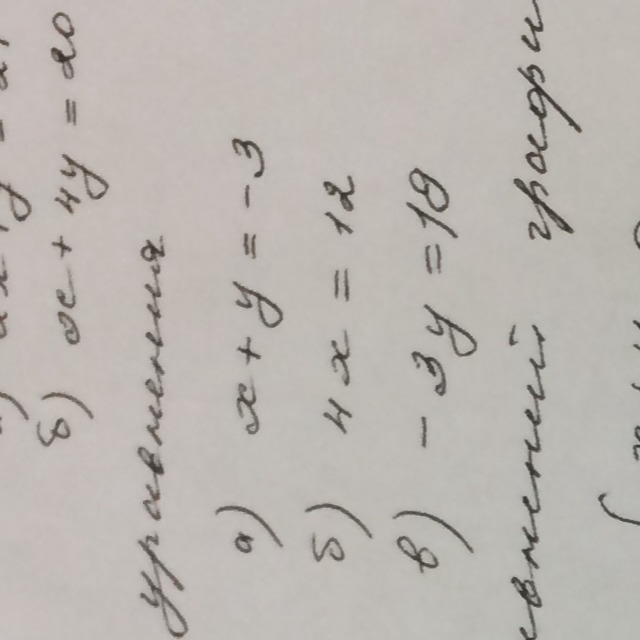 в) x + 4y = 20
уравнения
а) x + y = -3
б) 4x = 12
в) -3y = 18
внений графи